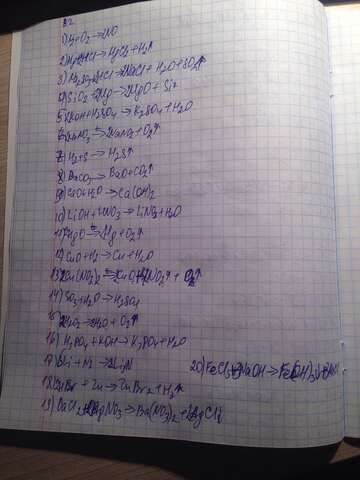 1) N₂+O₂→2NO
2) Mg+2HCl→MgCl₂+H₂↑
3) Na₂SO₃+2HCl→2NaCl+H₂O+SO₂↑
4) SiO₂+2Mg→2MgO+Si
5) 2KOH+H₂SO₄→K₂SO₄+H₂O
6) 2NaNO₃→2NaNO₂+O₂↑
7) H₂+S→H₂S↑
8) BaCO₃→BaO+CO₂↑
9) CaO+H₂O→Ca(OH)₂
10) LiOH+HNO₃→LiNO₃+H₂O
11) 2HgO→2Hg+O₂↑
12) CuO+H₂→Cu+H₂O
13) 2Cu(NO₃)₂→2CuO+4NO₂↑+O₂↑
14) SO₃+H₂O→H₂SO₄
15) 2H₂O₂→2H₂O+O₂↑
16) H₃PO₄+3KOH→K₃PO₄+H₂O
17) 6Li+N₂→2Li₃N
18) 2HBr+Zn→ZnBr₂+H₂↑
19) BaCl₂+2AgNO₃→Ba(NO₃)₂+2AgCl↓
20) FeCl₃+3NaOH→Fe(OH)₃↓+3NaCl